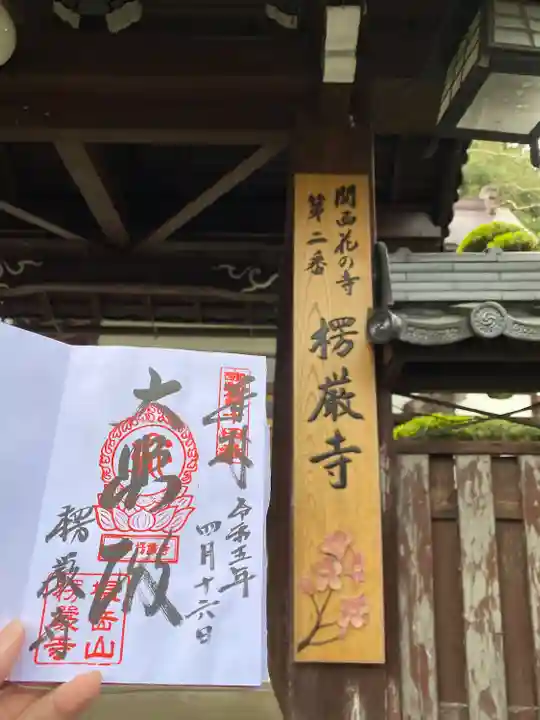 関西花の寺
第二番
楞厳寺
奉拝
令和五年
四月十六日
大悲殿
楞厳寺